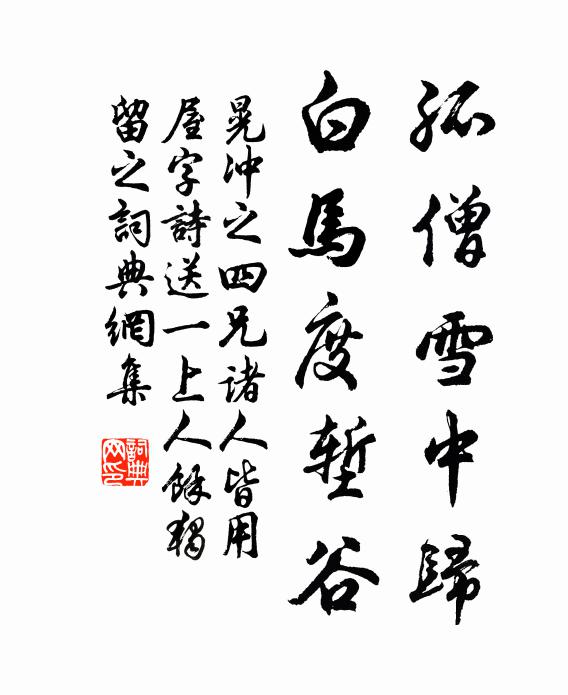 孤僧雪中歸
白馬度塹谷
晁沖之四兄諸人皆用
屋字詩送一上人餘獨
留之詞典網集
詞典
网印